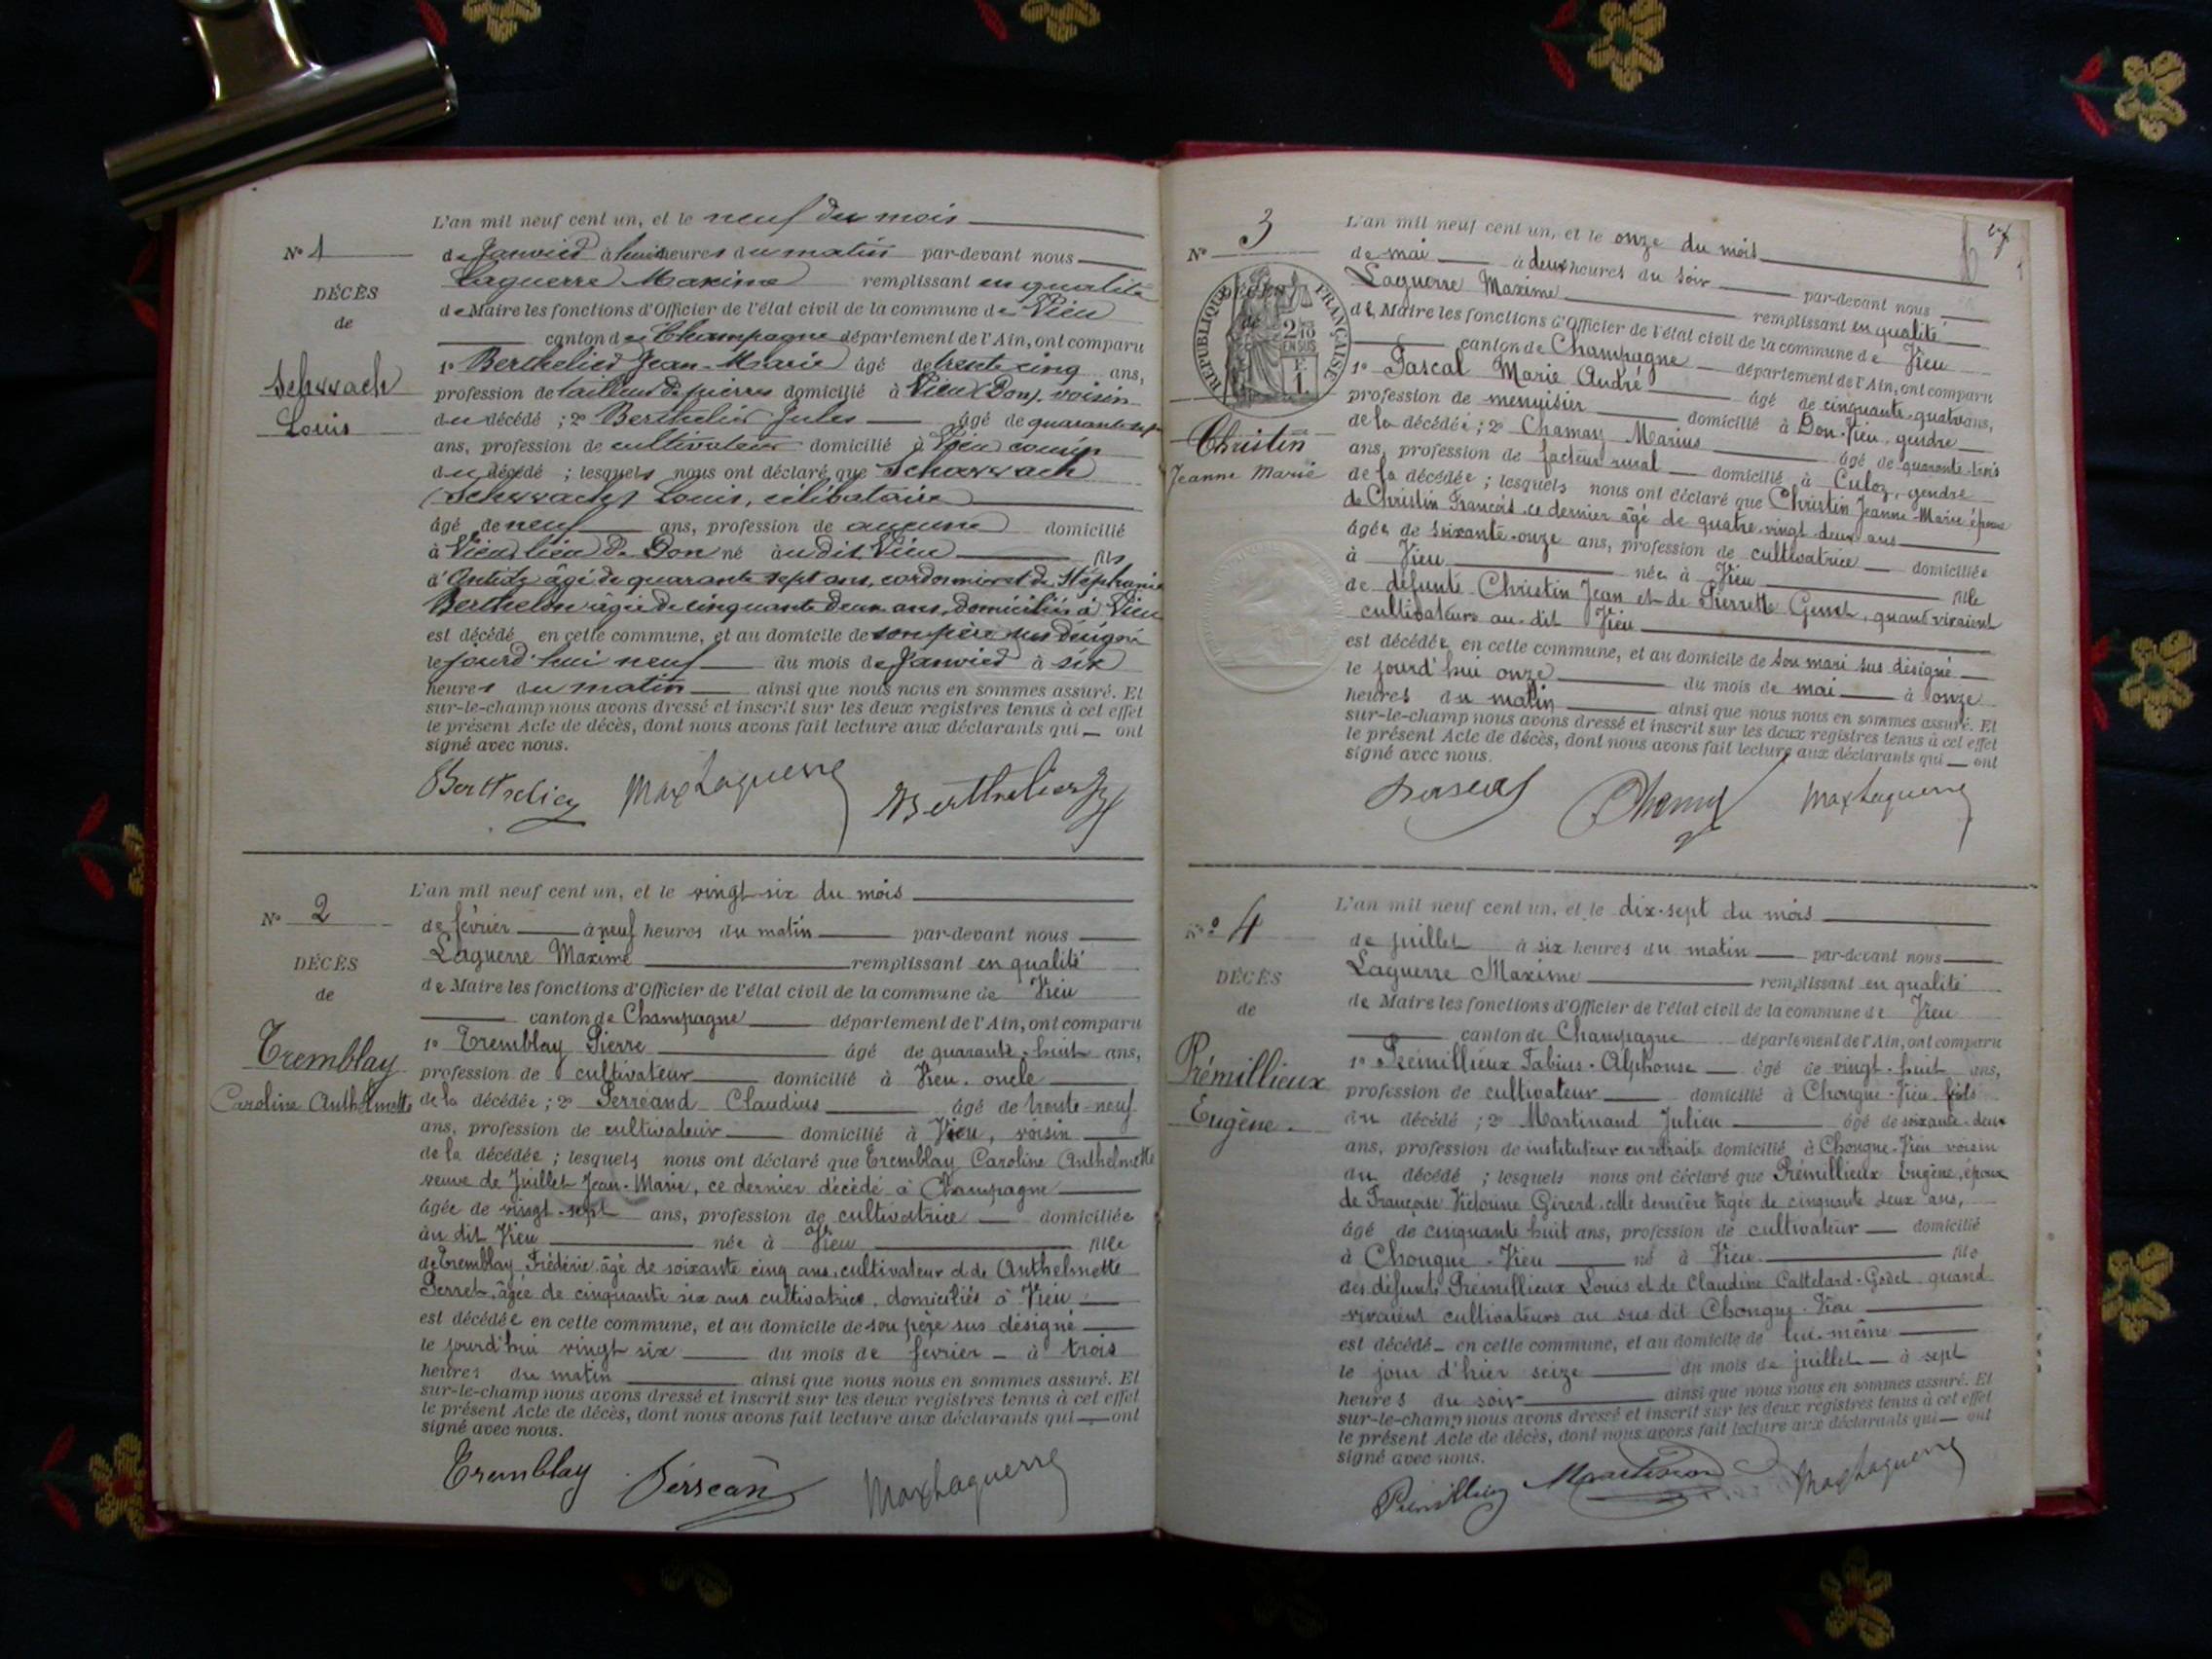 L'an mil neuf cent un, et le neuf du mois
N° 1
de Janvier à huit heures du matin par-devant nous
DÉCÈS
de
Schwach
Louis
Laguerre Maxime remplissant en qualité
de Maire les fonctions d'Officier de l'état civil de la commune de Vieu
canton de Champagne département de l'Ain, ont comparu
1° Berthelier Jean-Marie âgé de trente cinq ans,
profession de tailleur de pierres domicilié à Vieu Don, voisin
du décédé ; 2° Berthelier Jules âgé de quarante sept
ans, profession de cultivateur domicilié à Vieu cousin
du décédé ; lesquels nous ont déclaré que
Louis, célibataire
âgé de neuf ans, profession de aucune domicilié
à Vieu lieu de Don né au dit Vieu fils
d' âgé de quarante sept ans, cordonnier et de Stéphanie
âgée de cinquante deux ans, domiciliés à Vieu
est décédé en cette commune, et au domicile de son père sus désigné
le jourd'hui neuf du mois de Janvier à six
heures du matin ainsi que nous nous en sommes assuré. Et
sur-le-champ nous avons dressé et inscrit sur les deux registres tenus à cet effet
le présent Acte de décès, dont nous avons fait lecture aux déclarants qui ont
signé avec nous.
Berthelier Max Laguerre Berthelier
L'an mil neuf cent un, et le vingt-six du mois
N° 2
DÉCÈS
de
Tremblay
Caroline Anthelmette
de février à neuf heures du matin par-devant nous
Laguerre Maxime remplissant en qualité
de Maire les fonctions d'Officier de l'état civil de la commune de Vieu
canton de Champagne département de l'Ain, ont comparu
1° Tremblay Pierre âgé de quarante-huit ans,
profession de cultivateur domicilié à Vieu. oncle
de la décédée ; 2° Perréand Claudius âgé de trente-neuf
ans, profession de cultivateur domicilié à Vieu, voisin
de la décédée ; lesquels nous ont déclaré que Tremblay Caroline Anthelmette
veuve de Juillet Jean-Marie, ce dernier décédé à Champagne
âgée de vingt-sept ans, profession de cultivatrice domiciliée
au dit Vieu née à Vieu fille
de Tremblay Frédéric âgé de soixante cinq ans, cultivateur et de Anthelmette
Perret, âgée de cinquante six ans cultivatrice, domiciliés à Vieu
est décédée en cette commune, et au domicile de son père sus désigné
le jourd'hui vingt six du mois de février à trois
heures du matin ainsi que nous nous en sommes assuré. Et
sur-le-champ nous avons dressé et inscrit sur les deux registres tenus à cet effet
le présent Acte de décès, dont nous avons fait lecture aux déclarants qui ont
signé avec nous.
Tremblay Perréand Max Laguerre
L'an mil neuf cent un, et le onze du mois
N° 3
RÉPUBLIQUE FRANÇAISE
2/10 EN SUS
Christin
Jeanne Marie
de mai à deux heures du soir par-devant nous
Laguerre Maxime remplissant en qualité
de Maire les fonctions d'Officier de l'état civil de la commune de Vieu
canton de Champagne département de l'Ain, ont comparu
1° Pascal Marie André âgé de cinquante-quatre ans,
profession de menuisier domicilié à Don-Vieu, gendre
de la décédée ; 2° Chamay Marius âgé de quarante-trois
ans, profession de facteur rural domicilié à Culoz, gendre
de la décédée ; lesquels nous ont déclaré que Christin Jeanne-Marie épouse
de Christin François ce dernier âgé de quatre-vingt-deux ans
âgée de soixante-onze ans, profession de cultivatrice domiciliée
à Vieu née à Vieu fille
de défunts Christin Jean et de Pierrette Genet, quand vivaient
cultivateurs au-dit Vieu
est décédée en cette commune, et au domicile de son mari sus désigné
le jourd'hui onze du mois de mai à onze
heures du matin ainsi que nous nous en sommes assuré. Et
sur-le-champ nous avons dressé et inscrit sur les deux registres tenus à cet effet
le présent Acte de décès, dont nous avons fait lecture aux déclarants qui ont
signé avec nous.
Pascal Chamay Max Laguerre
L'an mil neuf cent un, et le dix-sept du mois
N° 4
DÉCÈS
de
Prémillieux
Eugène
de juillet à six heures du matin par-devant nous
Laguerre Maxime remplissant en qualité
de Maire les fonctions d'Officier de l'état civil de la commune de Vieu
canton de Champagne département de l'Ain, ont comparu
1° Prémillieux Fabius-Alphonse âgé de vingt-huit ans,
profession de cultivateur domicilié à Chongne-Vieu. fils
du décédé ; 2° Martinand Julien âgé de soixante-deux
ans, profession de instituteur en retraite domicilié à Chongne-Vieu voisin
du décédé ; lesquels nous ont déclaré que Prémillieux Eugène, époux
de Françoise Victorine Girerd, cette dernière âgée de cinquante deux ans,
âgé de cinquante huit ans, profession de cultivateur domicilié
à Chongne-Vieu né à Vieu fils
des défunts Prémillieux Louis et de Claudine Cattelard-Godet quand
vivaient cultivateurs au sus dit Chongne-Vieu
est décédé en cette commune, et au domicile de lui-même
le jour d'hier seize du mois de juillet à sept
heures du soir ainsi que nous nous en sommes assuré. Et
sur-le-champ nous avons dressé et inscrit sur les deux registres tenus à cet effet
le présent Acte de décès, dont nous avons fait lecture aux déclarants qui ont
signé avec nous.
Prémillieux Martinand Max Laguerre